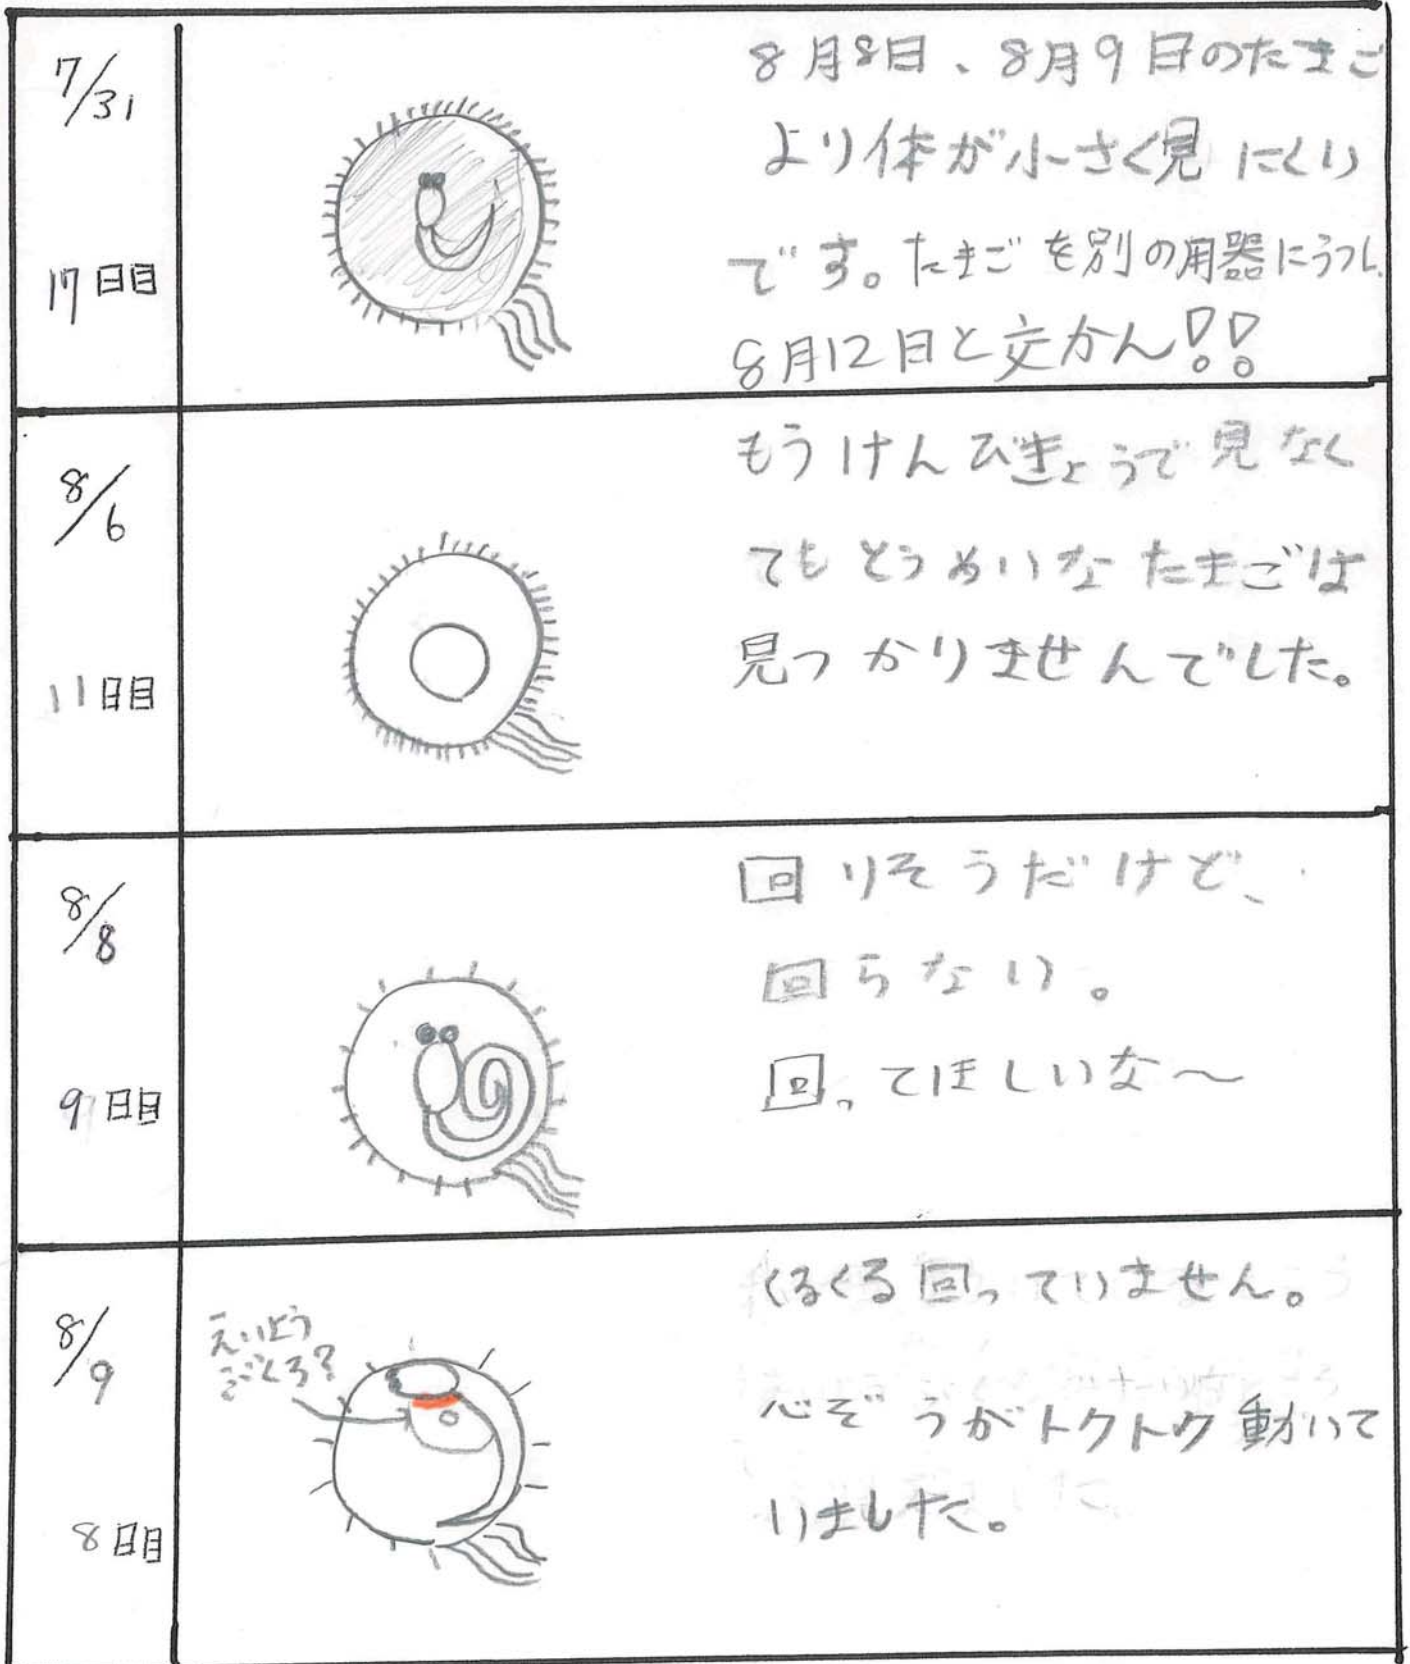 7/31
17日目
8月8日、8月9日のたまご
より体が小さく見にくい
です。たまごを別の用器にうつし、
8月12日と交かん!!
8/6
11日目
もうけんびきょうで見なく
てもとうめいなたまごは
見つかりませんでした。
8/8
9日目
回りそうだけど、
回らない。
回ってほしいな〜
8/9
8日目
えいよう
ぶくろ?
くるくる回っていません。
心ぞうがトクトク動いて
いました。